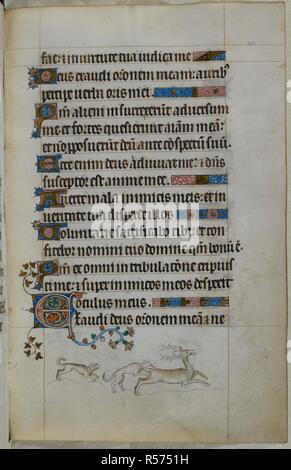 fac: et in uirtute tua iudica me
Deus exaudi orōnem meam: aurib⁹
percipe uerba oris mei.
Qm alieni insurrexerūt aduersum
me et fortes quesierūt aīam meā:
et nō posuerūt deū ante cōspectū suū.
Ecce enim deus adiuuat me: et dn̄s
susceptor est anime mee.
Auerte mala inimicis meis: et in
ueritate tua disperde illos
Uoluntarie sacrificabo tibi: et con
fitebor nomini tuo domine qm̄ bonū ē.
Qm ex omni tribulatōne eripuis
ti me: et super inimicos meos despexit
oculus meus.
Exaudi deus orōnem meā: et ne
alamy
alamy
Image ID: R5751H
www.alamy.com